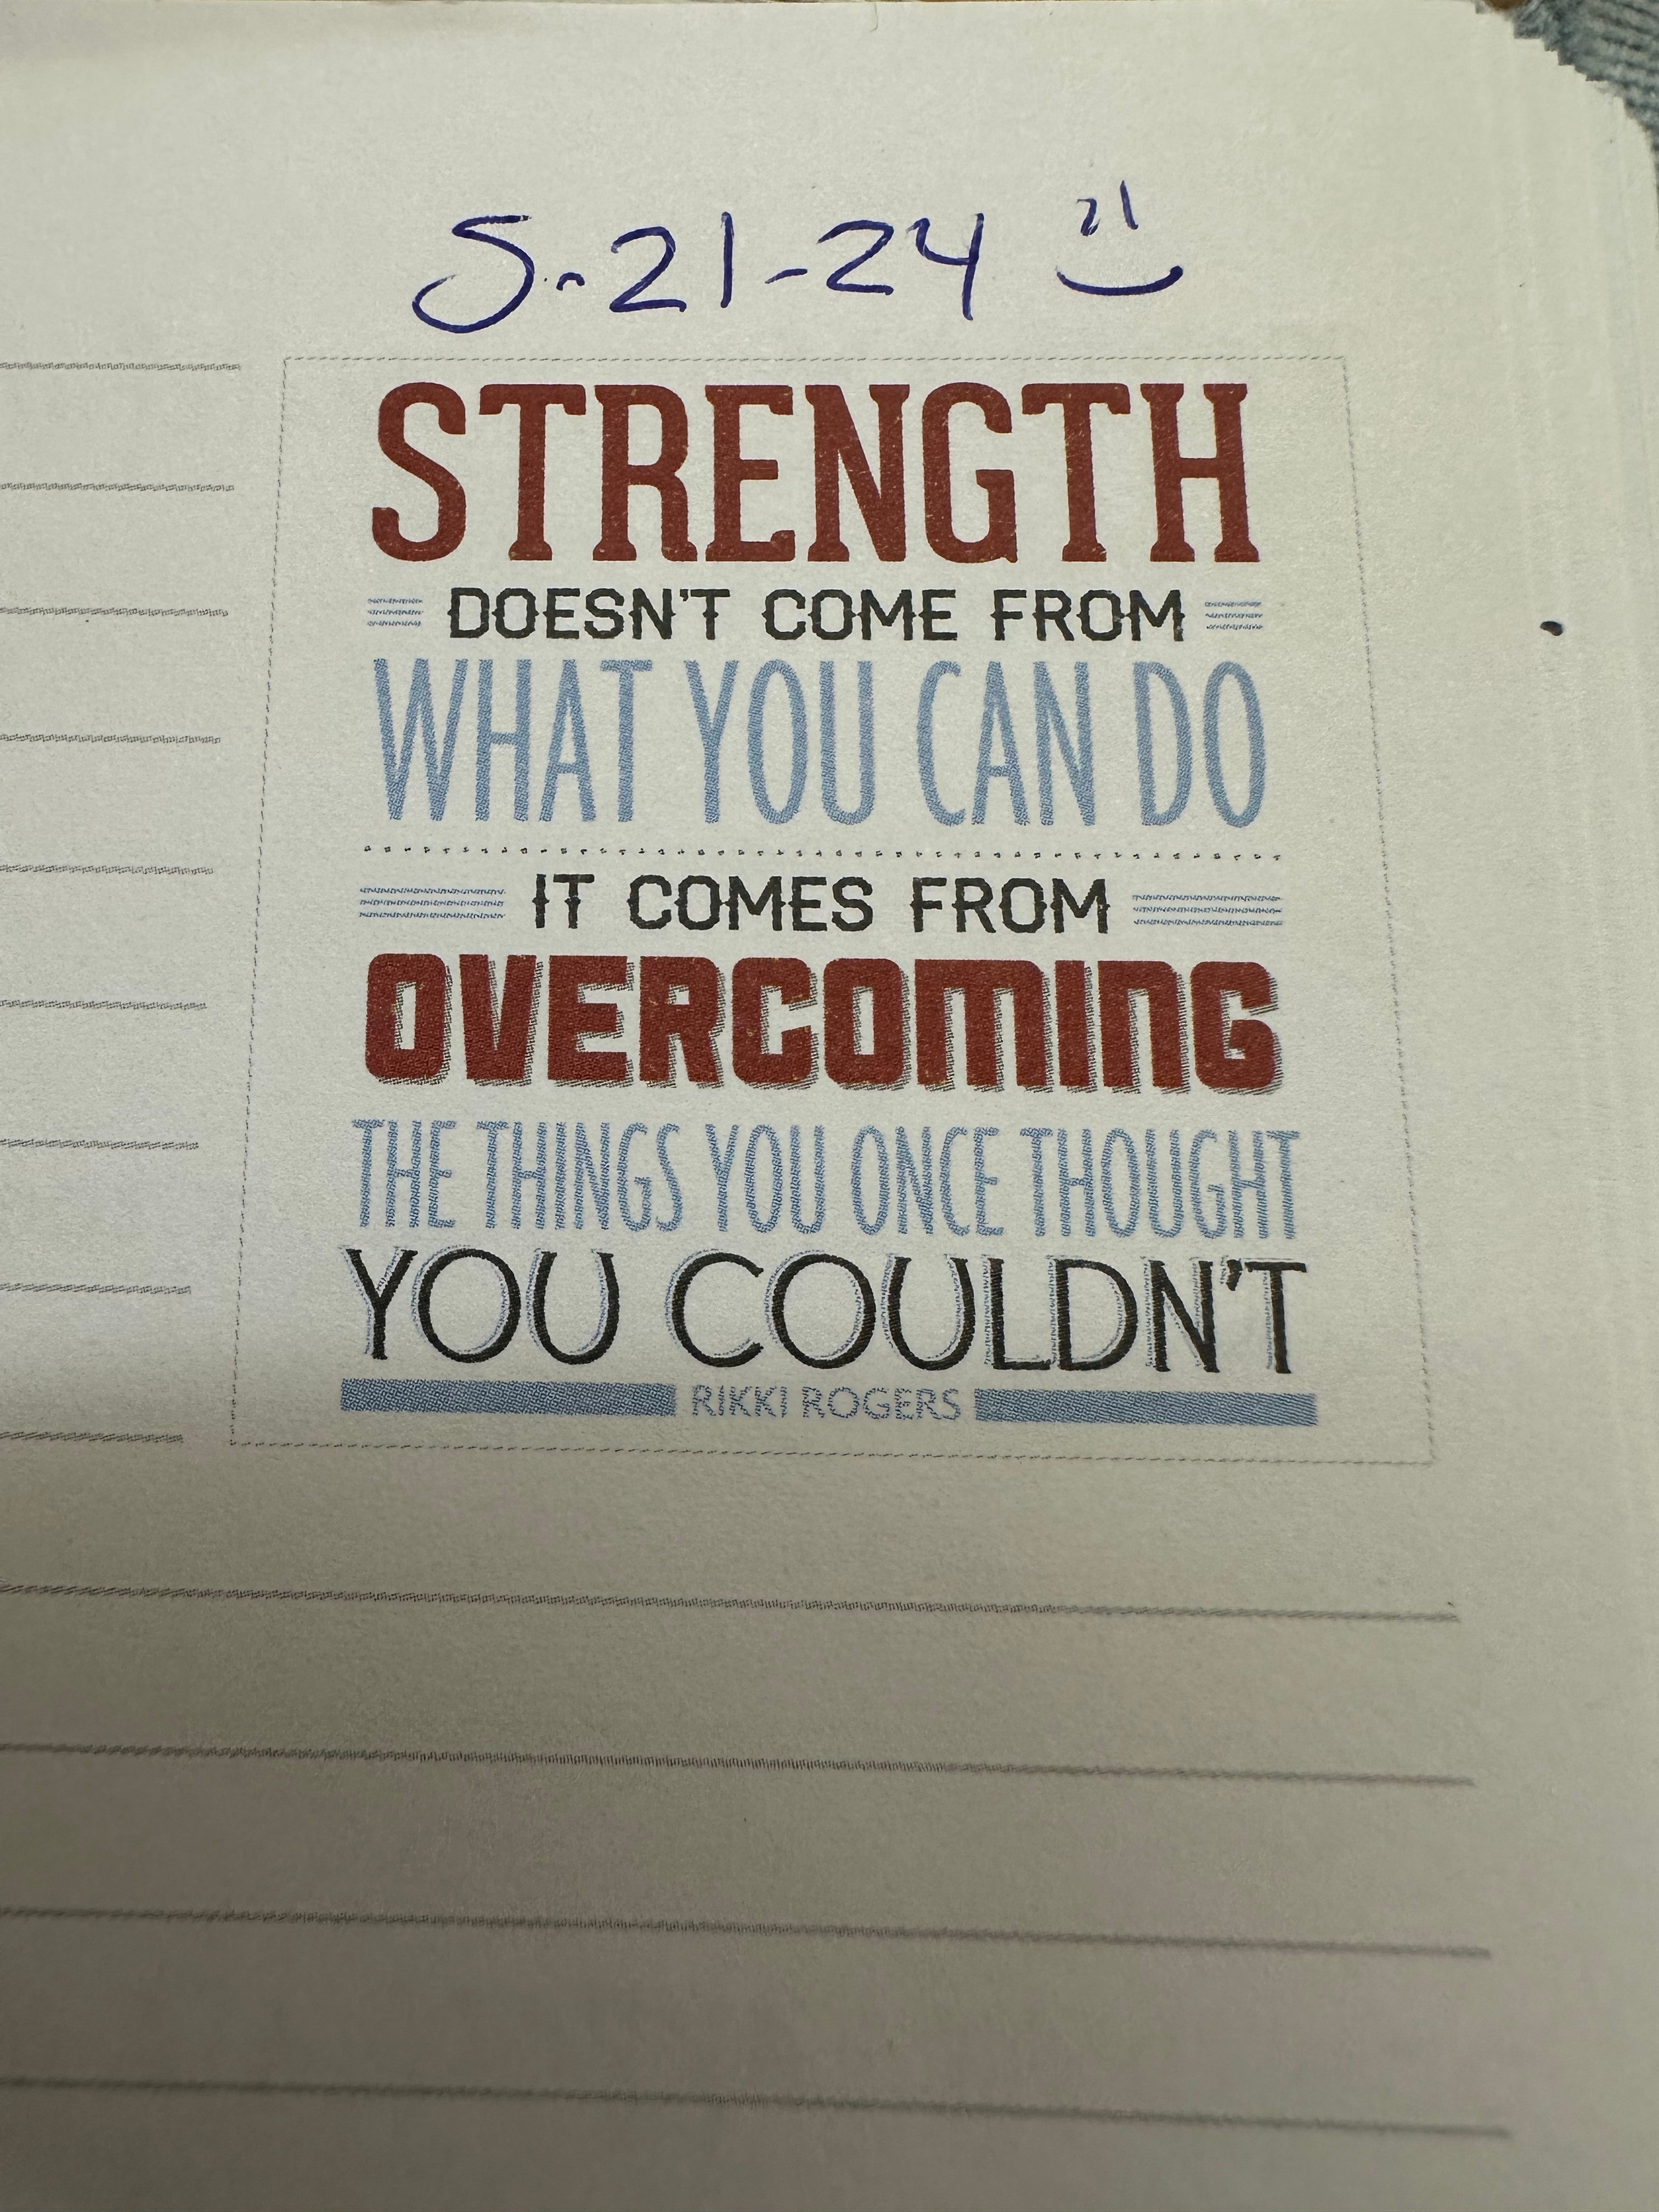 5-21-24
STRENGTH
DOESN'T COME FROM
WHAT YOU CAN DO
IT COMES FROM
OVERCOMING
THE THINGS YOU ONCE THOUGHT
YOU COULDN'T
RIKKI ROGERS